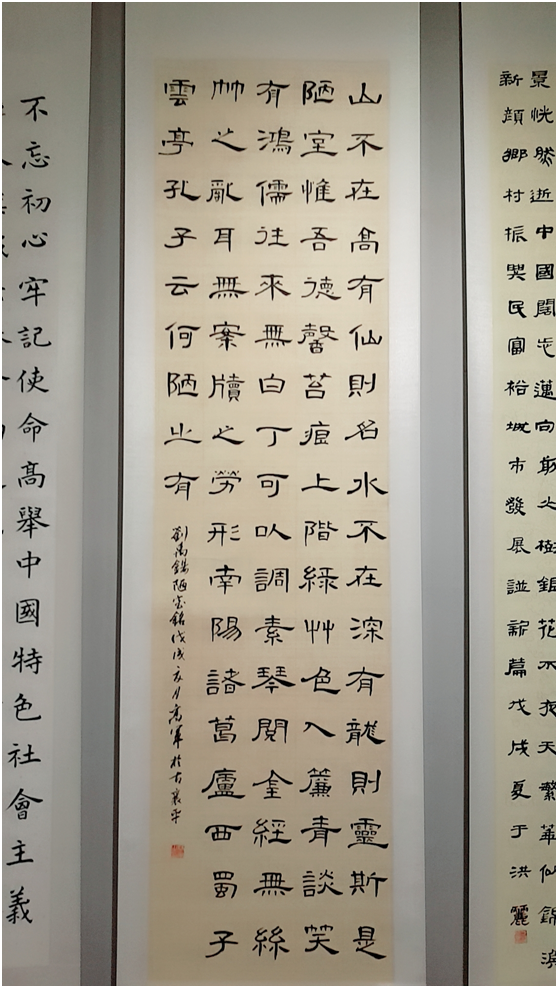 景恍然逝中國闊步邁向前火樹銀花不夜天繁華似錦
新顏鄉村振興民富裕城市發展譜新篇戊戌夏于洪麗
山不在高有仙則名水不在深有龍則靈斯是
陋室惟吾德馨苔痕上階綠艸色入簾青談笑
有鴻儒往來無白丁可以調素琴閱金經無絲
竹之亂耳無案牘之勞形南陽諸葛廬西蜀子
雲亭孔子云何陋之有
劉禹錫陋室銘戊戌月高軍於古襄平
不忘初心牢記使命高舉中國特色社會主義